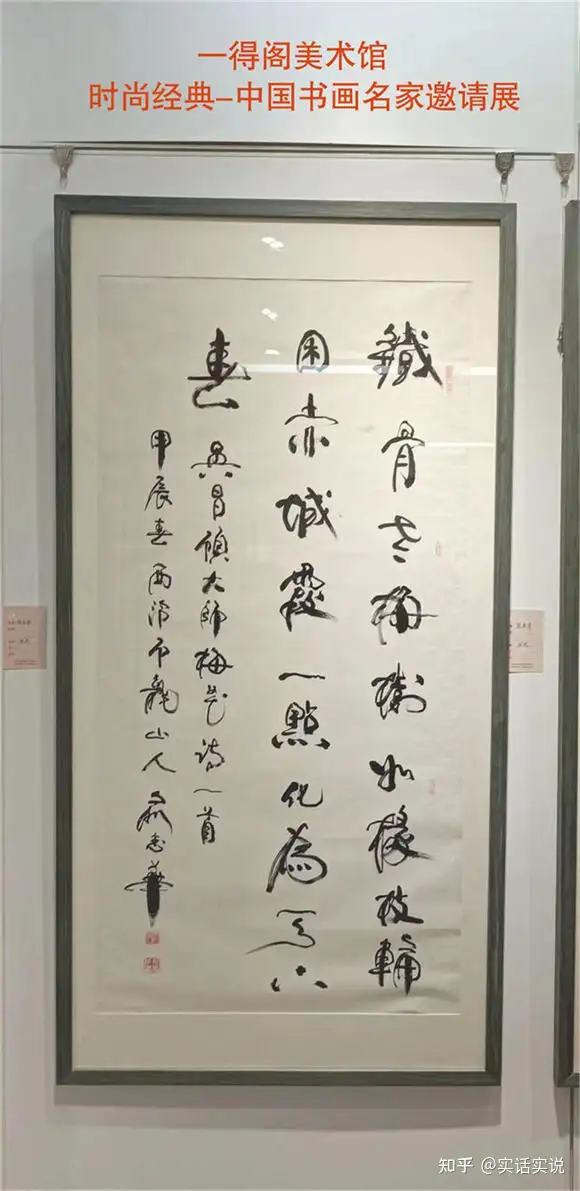 一得阁美术馆
时尚经典-中国书画名家邀请展
鐵骨老梅樹如椽枝輪
囷赤城霞一點化為天下
春 吳昌碩大師梅花詩一首
甲辰春西泠 龍山人
知乎 @实话实说